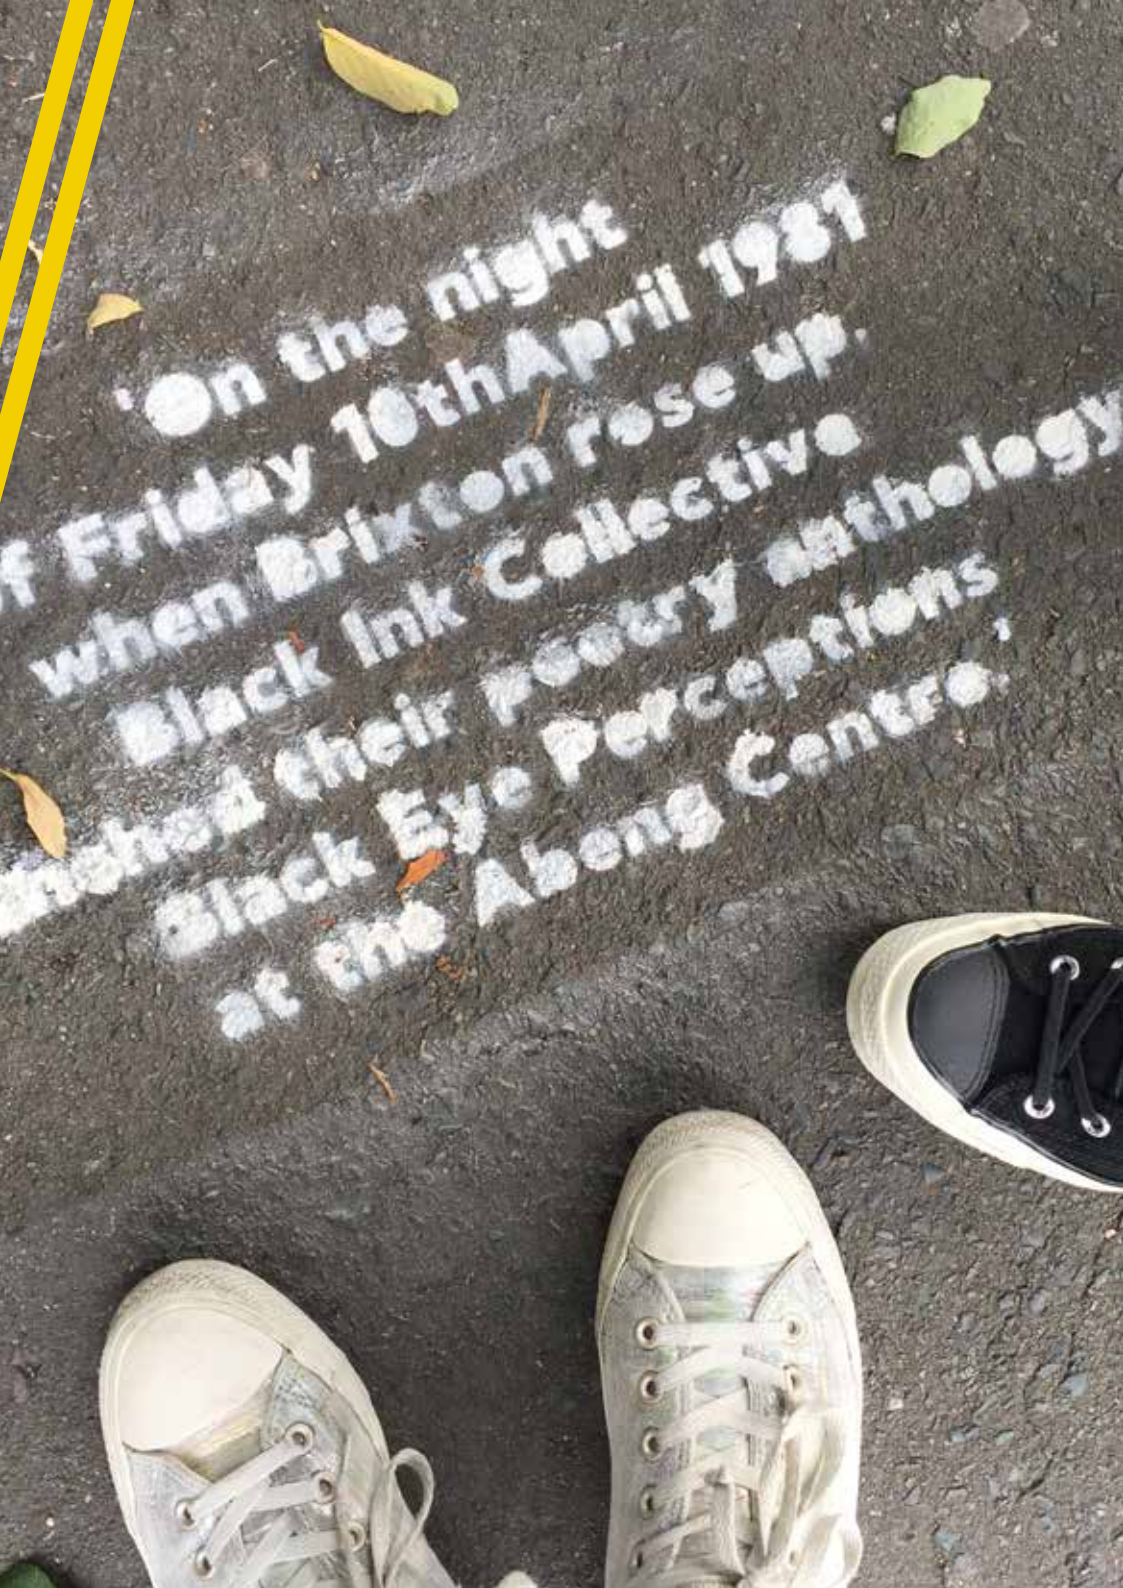 'On the night
of Friday 10thApril 1981
when Brixton rose up.
Black Ink Collective
their poetry anthology
Black Eye Perceptions
at the Abeng Centre.'